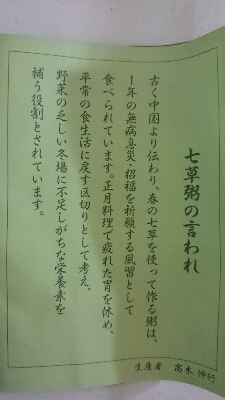 七草粥の言われ
古く中国より伝わり、春の七草を使って作る粥は、
1年の無病息災・招福を祈願する風習として
食べられています。正月料理で疲れた胃を休め、
平常の食生活に戻す区切りとして考え、
野菜の乏しい冬場に不足しがちな栄養素を
補う役割とされています。
生産者 高木